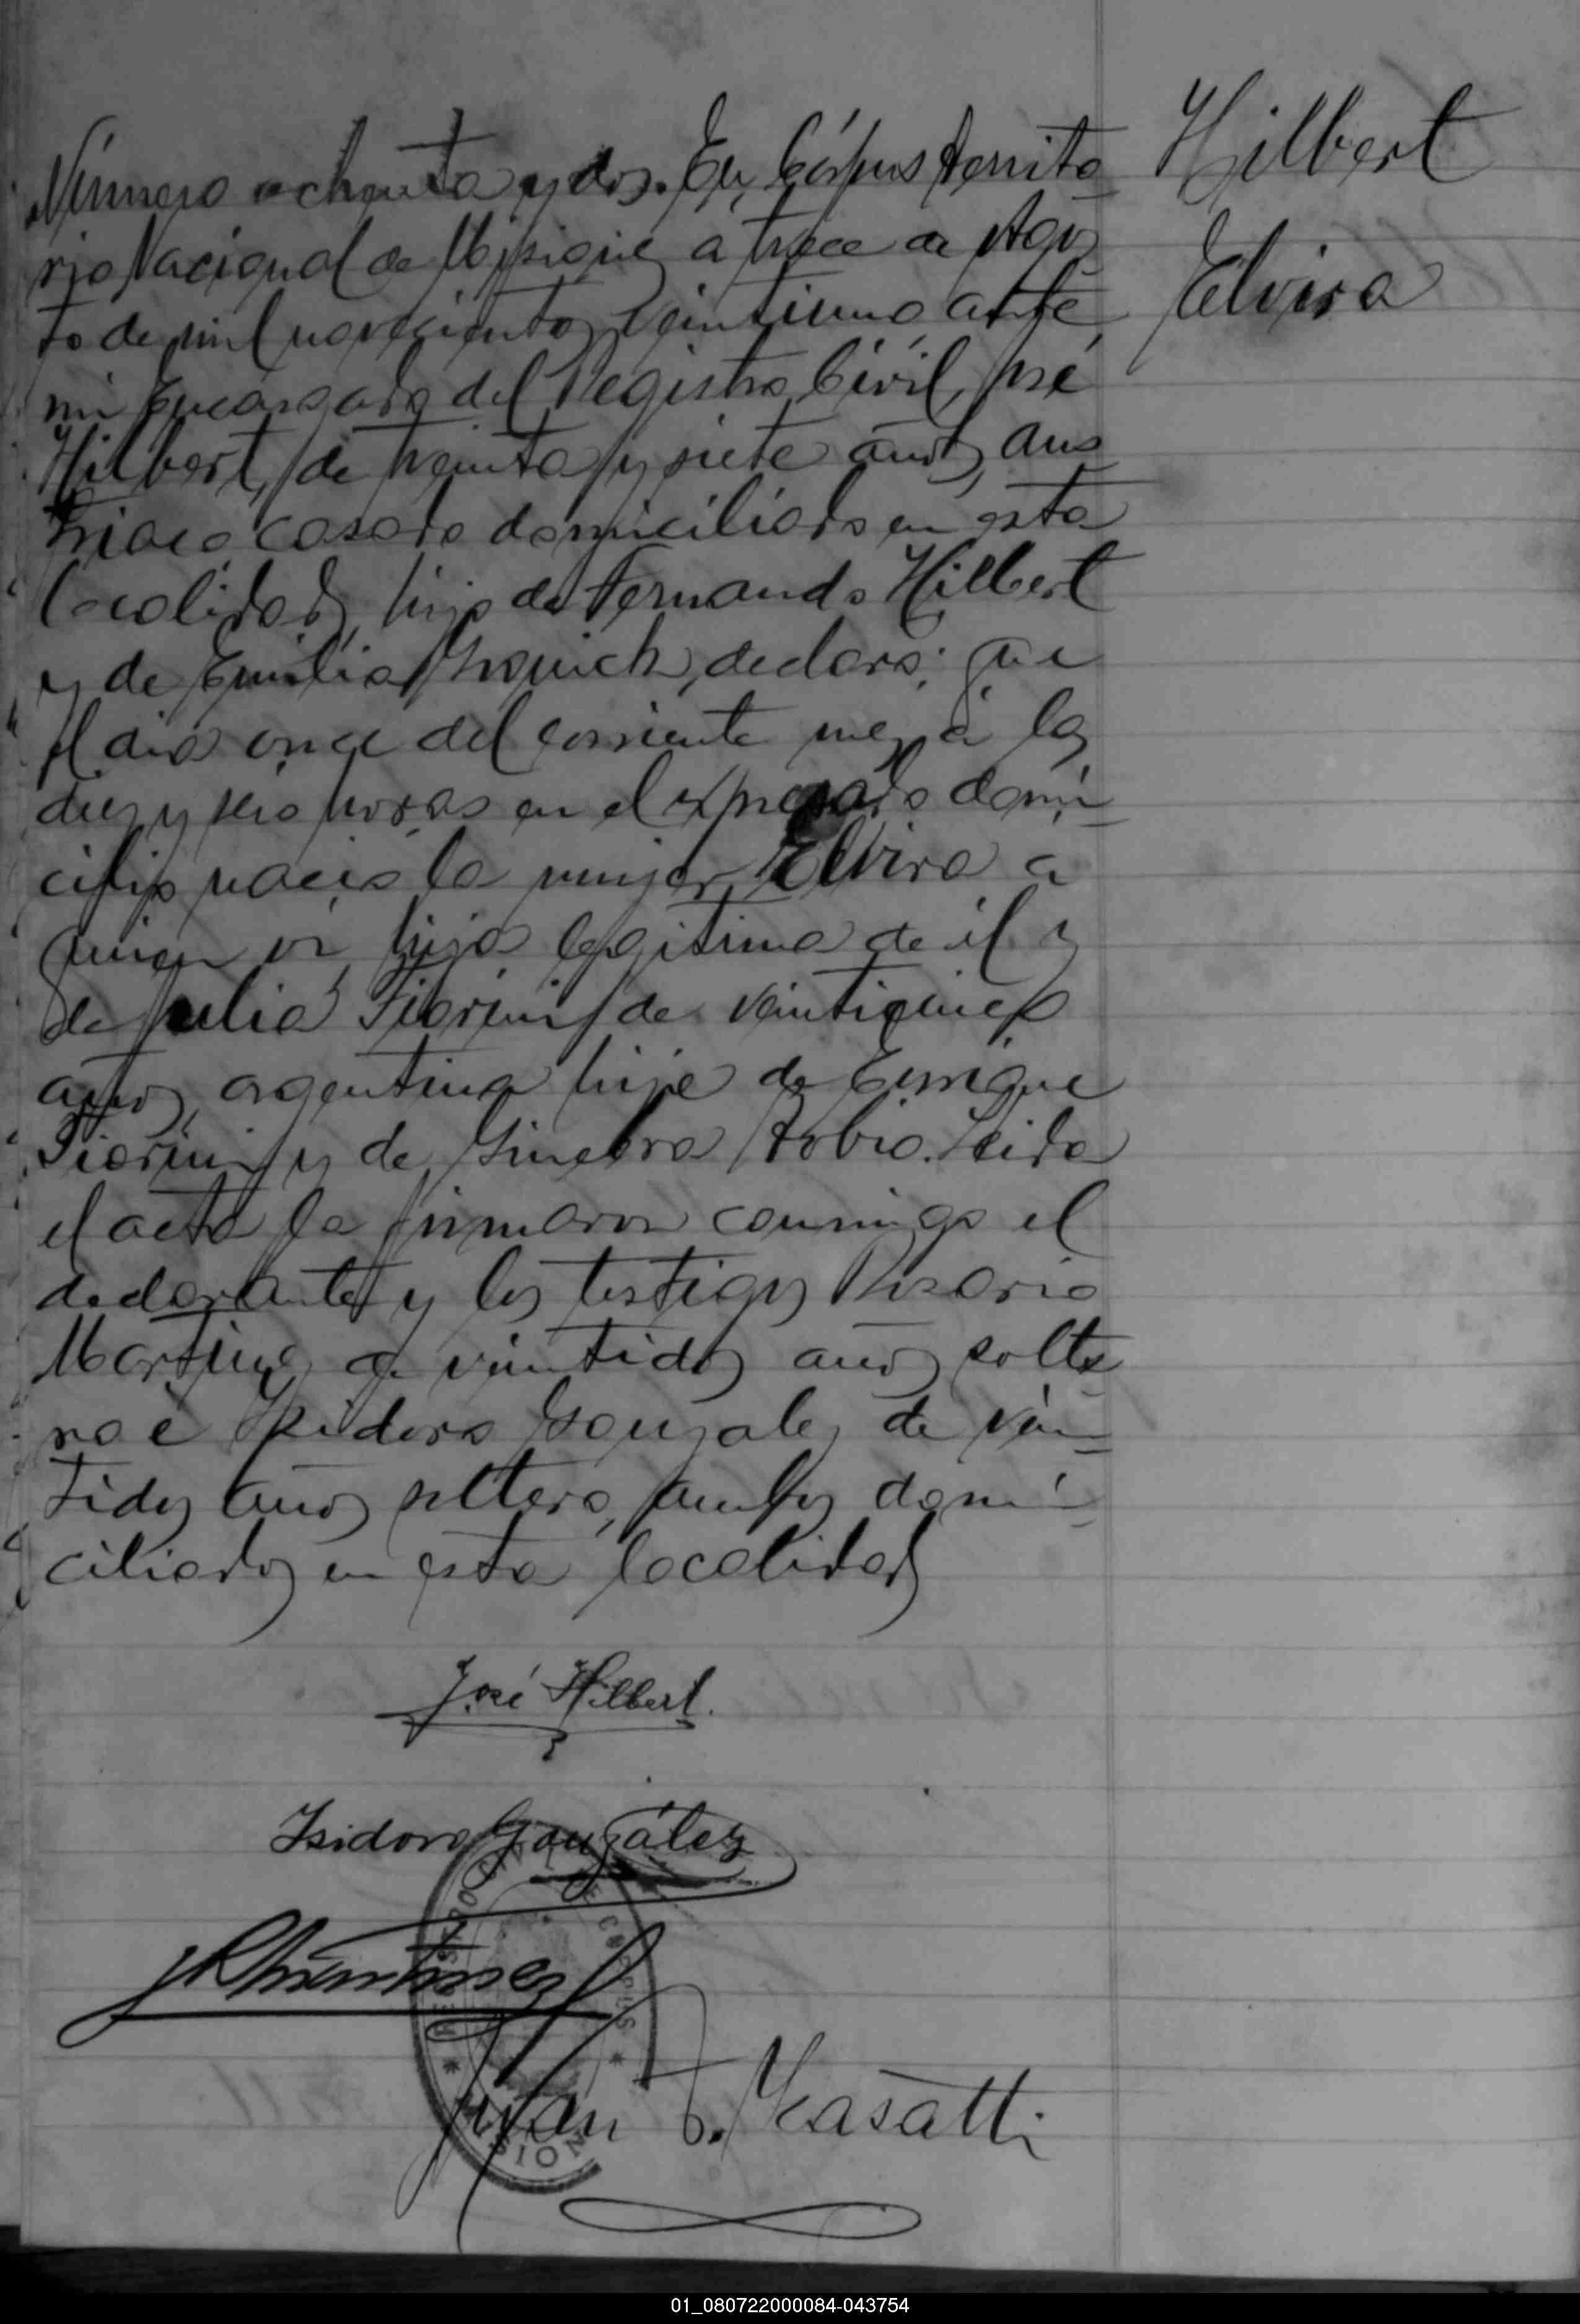 Hilbert
Elvira
Número ochenta y dos. En Córpus territo
rio Nacional de Misiones a trece de Agos
to de mil novecientos veintiuno ante
mi Encargado del Registro Civil, José
Hilbert, de treinta y siete años, aus
triaco casado domiciliado en esta
localidad, hijo de Fernando Hilbert
y de Emilia declaró: que
el dia once del corriente mes á las
diez y seis horas en el expresado domi
cilio nació la mujer Elvira a
quien vi, hija legitima de él y
de Julia Fiorini de veinticinco
años, argentina hija de Enrique
Fiorini y de Ginebra Leida
el acta la firmaron conmigo el
declarante y los testigos Rosario
Martinez de veintidos años solte
ro é Isidoro Gonzalez de vein
tidos años soltero, ambos domi
ciliados en esta localidad
José Hilbert.
Isidoro González
RMartinez
Juan F. Casatti
REGISTRO CIVIL DE CORPUS
* MISIONES *
01_080722000084-043754